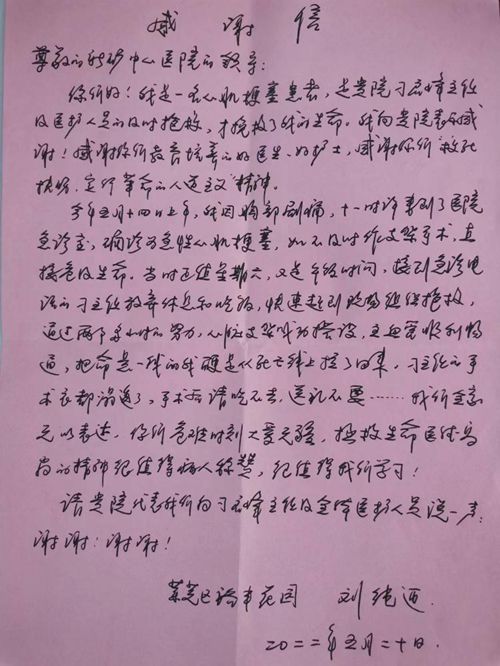 感谢信
尊敬的新矿中心医院的领导:
你们好!我是一名心肌梗塞患者,是贵院刁志峰主任
及医护人员的及时抢救,才挽救了我的生命。我向贵院表示感
谢!感谢你们教育培养的好医生、好护士,感谢你们救死
扶伤、实行革命的人道主义精神。
今年五月十四日上午,我因胸部剧痛,十一时许来到了医院
急诊室,确诊为急性心肌梗塞,如不及时作支架手术,直
接危及生命。当时正值星期六,又是午饭时间,接到急诊电
话的刁主任放弃休息和吃饭,快速赶到现场组织抢救,
通过两个多小时的努力,心脏支架成功搭设,主血管顺利畅
通,把命悬一线的我硬是从死亡线上拉了回来,刁主任的手
术衣都湿透了,手术后请吃不去,送礼不要……我们全家
无以表达,你们危难时刻大爱无疆,拯救生命医德高
尚的精神很值得病人称赞,很值得我们学习!
请贵院代表我们向刁志峰主任及全体医护人员说一声:
谢谢!谢谢!
莱芜区骑车花园 刘纯迺
二0二二年五月二十日